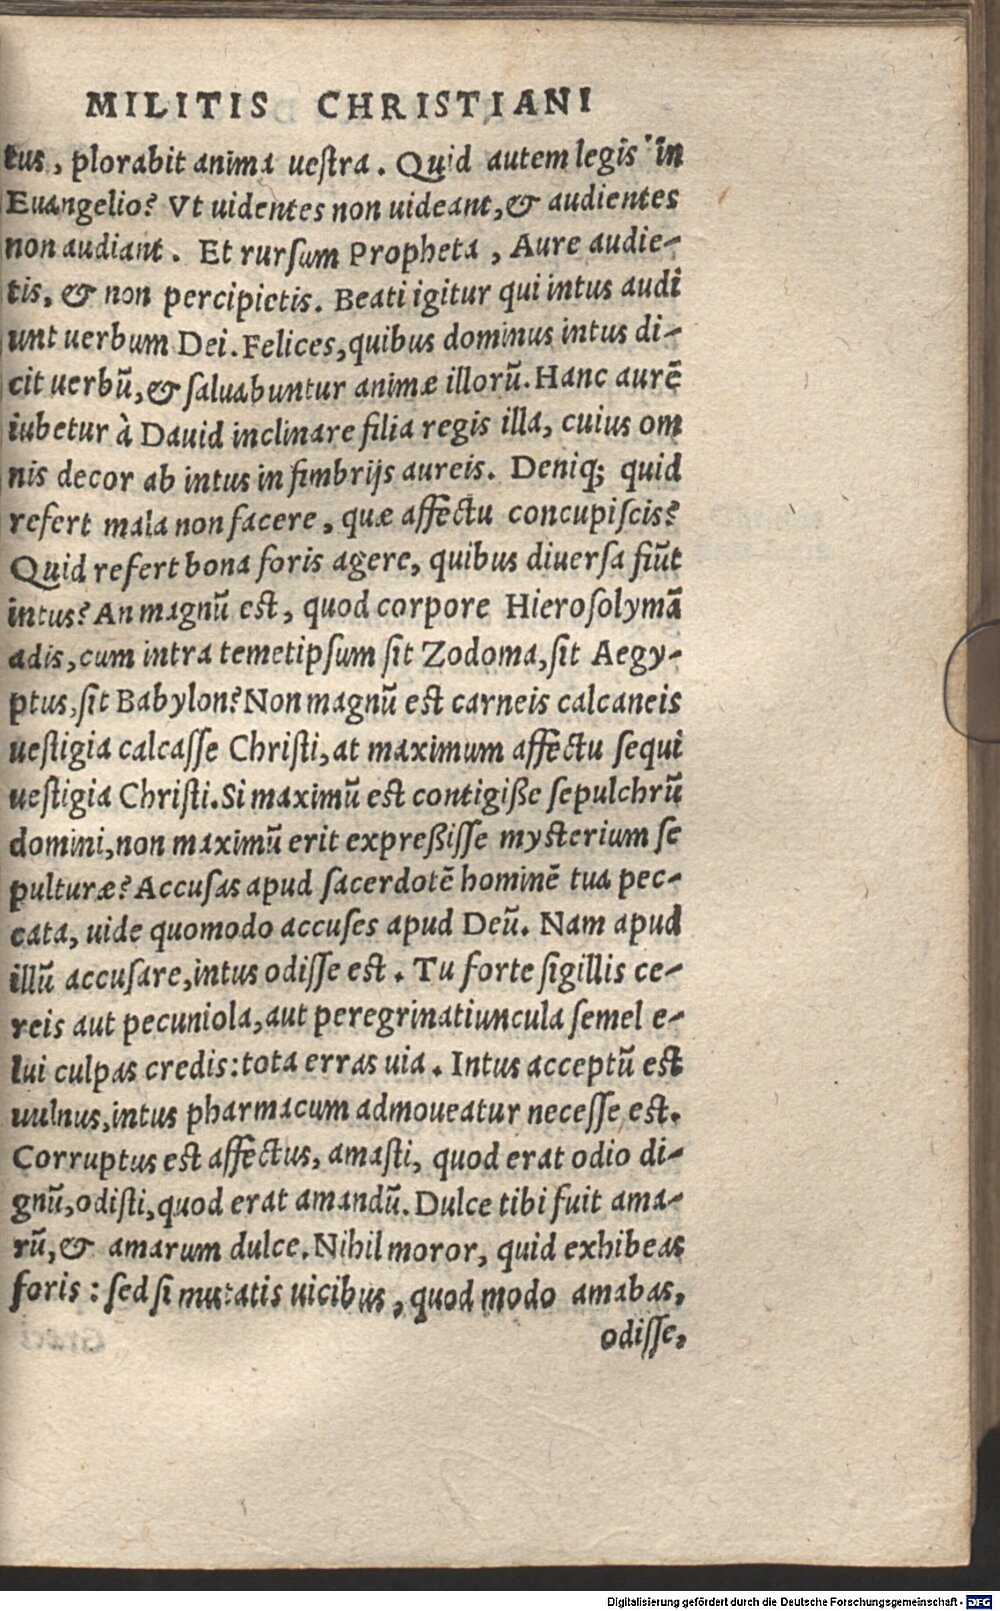 MILITIS CHRISTIANI
tus, plorabit anima uestra. Quid autem legis in
Euangelio? Vt uidentes non uideant, & audientes
non audiant. Et rursum Propheta, Aure audie-
tis, & non percipietis. Beati igitur qui intus audi
unt uerbum Dei. Felices, quibus dominus intus di-
cit uerbū, & saluabuntur animæ illorū. Hanc aurē
iubetur à Dauid inclinare filia regis illa, cuius om
nis decor ab intus in fimbrijs aureis. Deniq; quid
refert mala non facere, quæ affectu concupiscis?
Quid refert bona foris agere, quibus diuersa fiūt
intus? An magnū est, quod corpore Hierosolymā
adis, cum intra temetipsum sit Zodoma, sit Aegy-
ptus, sit Babylon? Non magnū est carneis calcaneis
uestigia calcasse Christi, at maximum affectu sequi
uestigia Christi. Si maximū est contigiße sepulchrū
domini, non maximū erit expreßisse mysterium se
pulturæ? Accusas apud sacerdotē hominē tua pec-
cata, uide quomodo accuses apud Deū. Nam apud
illū accusare, intus odisse est. Tu forte sigillis ce-
reis aut pecuniola, aut peregrinatiuncula semel e-
lui culpas credis: tota erras uia. Intus acceptū est
uulnus, intus pharmacum admoueatur necesse est.
Corruptus est affectus, amasti, quod erat odio di-
gnū, odisti, quod erat amandū. Dulce tibi fuit ama-
rū, & amarum dulce. Nihil moror, quid exhibeas
foris: sed si mutatis uicibus, quod modo amabas,
odisse,
Digitalisierung gefördert durch die Deutsche Forschungsgemeinschaft - DFG